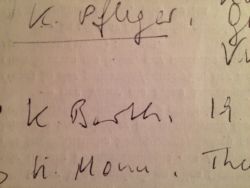 K. Pfleger.
K. Barth. 19
H. Monn. The